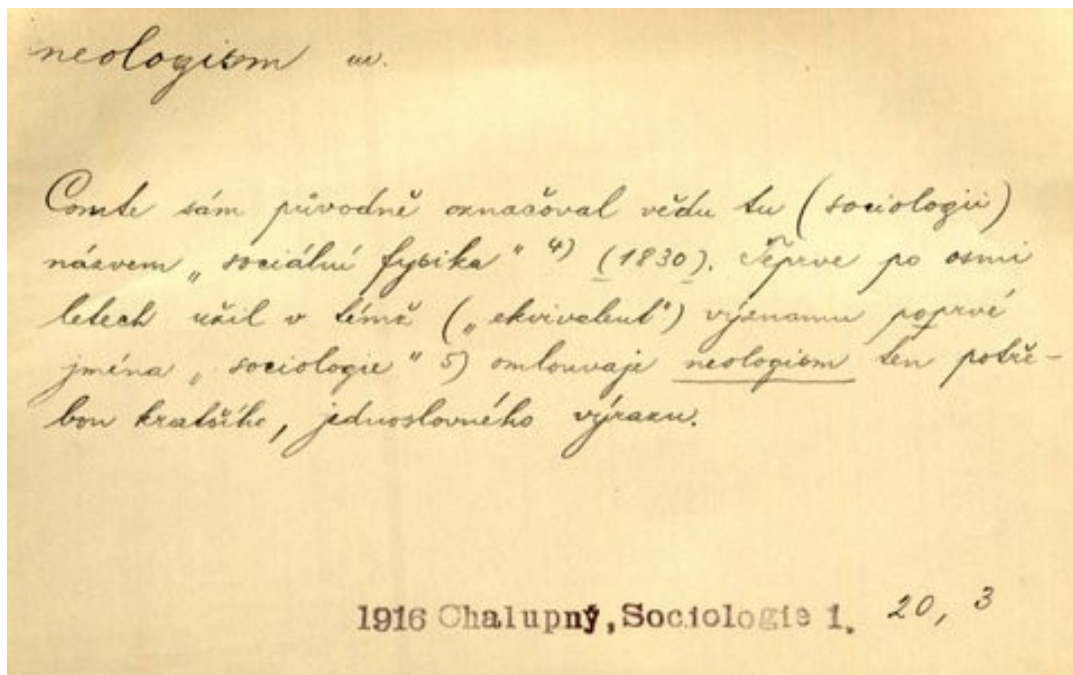 neologism m.
Comte sám původně označoval vědu tu (sociologii)
názvem „sociální fysika“ 4) (1830). Teprve po osmi
letech užil v témž („ekvivalent“) významu poprvé
jména „sociologie“ 5) omlouvaje neologism ten potře-
bou kratšího, jednoslovného výrazu.
1916 Chalupný, Sociologie 1. 20, 3